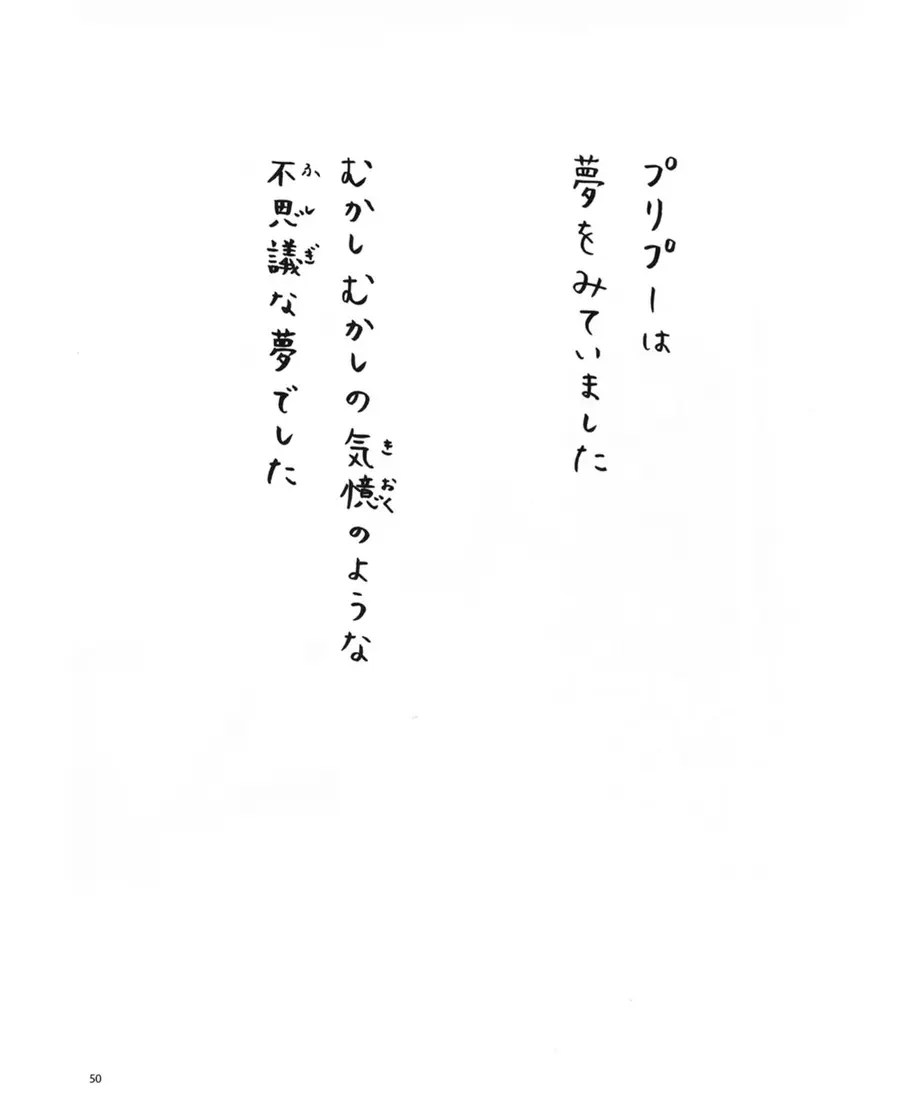 プリプーは
夢をみていました
むかしむかしの気憶のような
不思議な夢でした
きおく
ふしぎ
50